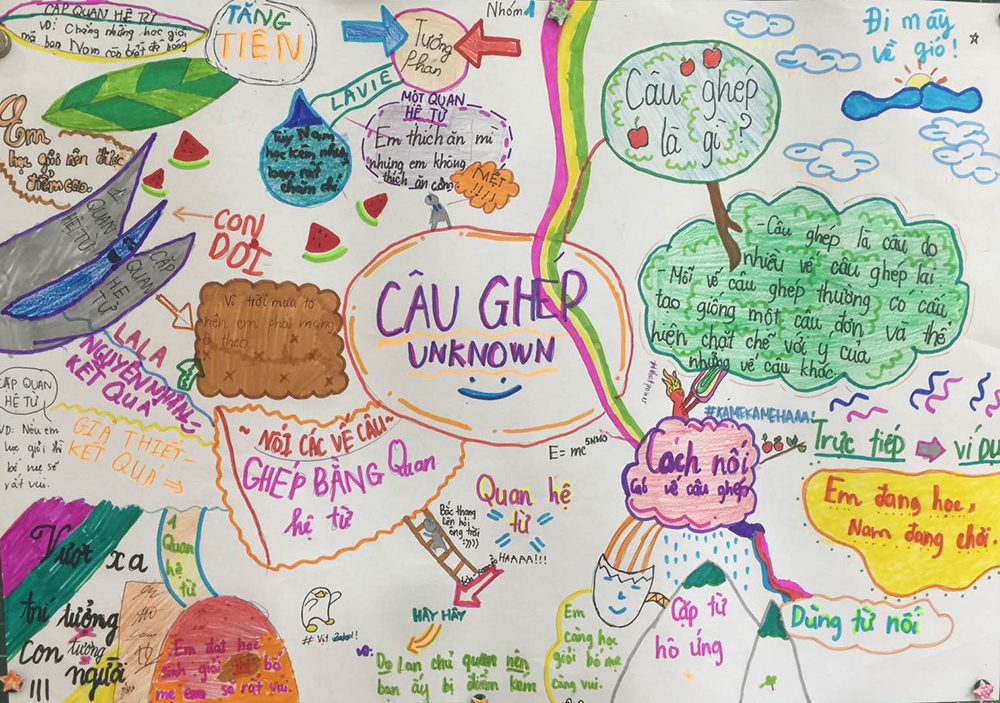 CẶP QUAN HỆ TỪ
VD: Chẳng những học giỏi
mà bạn Nam còn biết đá bóng
TĂNG
TIẾN
Tương
Phản
Nhóm 1
Đi mây
về gió!
LAVIE
Tuy Nam
học kém nhưng
bạn rất
chăm chỉ
MỘT QUAN
HỆ TỪ
Em thích ăn mì
nhưng em không
thích ăn cơm
MỆT
!!!!
Câu ghép
là gì?
Em
học giỏi nên được
điểm cao.
1 QUAN
HỆ TỪ
CẶP
QUAN
HỆ TỪ
CON
DƠI
Vì trời mưa to
nên em phải mang
ô theo
CÂU GHÉP
UNKNOWN
- Câu ghép là câu do
nhiều vế câu ghép lại
- Mỗi vế câu ghép thường có cấu
tạo giống một câu đơn và thể
hiện chặt chẽ với ý của
những vế câu khác.
LALA
NGUYÊN NHÂN
KẾT QUẢ
CẶP QUAN
HỆ TỪ
VD: Nếu em
học giỏi thì
bố mẹ sẽ
rất vui.
GIẢ THIẾT-
KẾT QUẢ
~ NỐI CÁC VẾ CÂU ~
GHÉP BẰNG Quan
hệ từ
E=mc
Quan hệ
từ
Bắc thang
lên hỏi
ông trời
:))))
HAAAA!!!
#KAMEKAMEHAAA!
Cách nối
các vế câu ghép
Trực tiếp
ví dụ
Em đang học,
Nam đang chơi.
Vượt xa
trí tưởng
tượng
Con người
!!!
1
Quan
hệ
từ
Em đạt học
sinh giỏi thì bố
mẹ em sẽ rất vui.
HÂY HÂY
VD:
Do Lan chủ quan nên
bạn ấy bị điểm kém
Em
càng học
giỏi bố mẹ
càng vui.
Cặp từ
hô ứng
Dùng từ nối